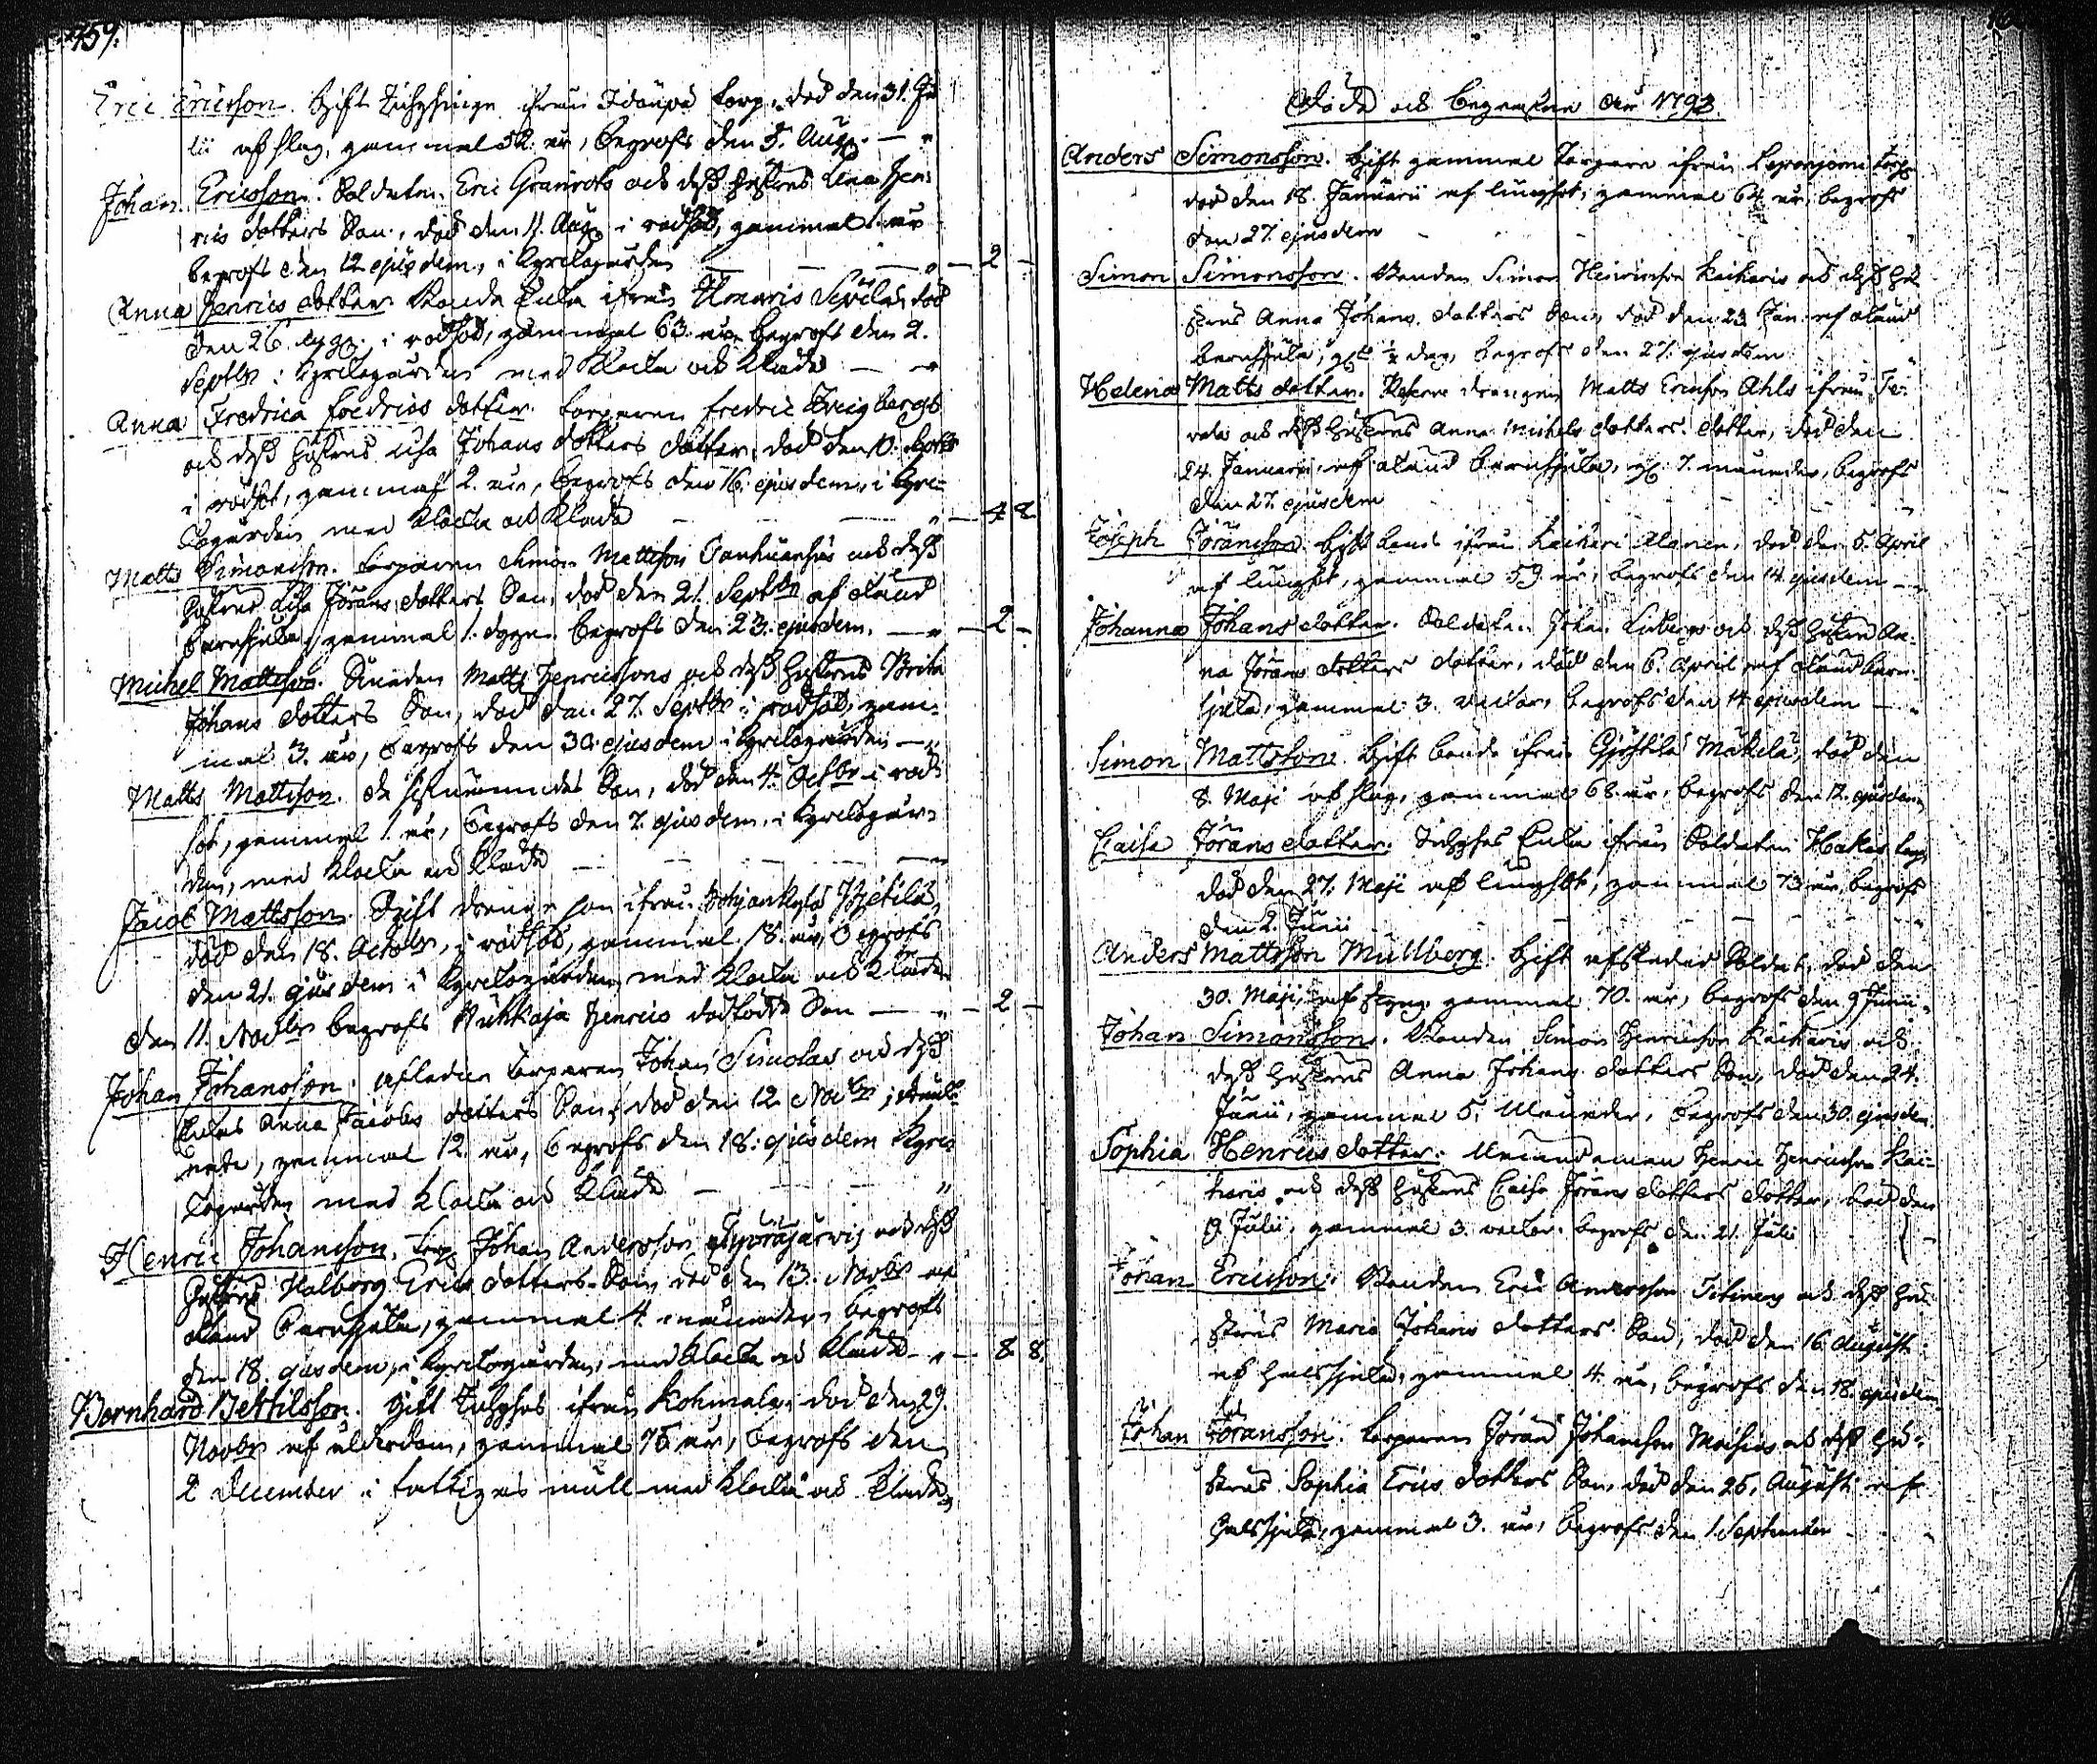 159.
Eric Ericsson. Gift Inhysinge ifrån torp, död den 31. Ju
lii af slag, gammal 52. år, begrofs den 5. Aug.
Johan Ericsson. Soldaten Eric Granrots och dess hustrus Lisa Hen
rics dotters Son, död den 11. Aug. i rödsot, gammal 1. år
begrofs den 12 ejusdem, i kyrkogården — 2 —
Anna Henrics dotter. Bonde Enka ifrån död
den 26. Aug. i rödsot, gammal 63. år, begrofs den 2.
Septbr i kyrkogården med klocka och kläde
Anna Fredrica Fredrics dotter. torparen Fredric
och dess hustrus Lisa Johans dotters dotter, död den 10. Septbr
i rödsot, gammal 2. år, begrofs den 16. ejusdem, i kyr-
kogården med klocka och kläde — 4 8
Matts Simonsson. torparen Simon Mattsson och dess
hustrus Lisa Jörans dotters Son, död den 21. Septbr af okänd
barnsjuka, gammal 1. dygn. begrofs den 23. ejusdem. — 2 —
Michel Mattsson. Matts Henricssons och dess hustrus Brita
Johans dotters Son, död den 27. Septbr i rödsot, gam-
mal 3. år, begrofs den 30. ejusdem i kyrkogården
Matts Mattsson. Son, död den 4. Octbr i röd
sot, gammal 1. år, begrofs den 7. ejusdem, i kyrkogår-
den, med klocka och kläde
Jacob Mattsson. Ogift dränge son ifrån
död den 18. Octobr, i rödsot, gammal 18. år, begrofs
den 21. ejusdem i kyrkogården med klocka och kläde
den 11. Novbr begrofs Henrics dödfödde Son — 2 —
Johan Johansson. afledne torparen Johan Simolas och dess
Enkas Anna Jacobs dotters Son, död den 12 Novbr i
gammal 12. år, begrofs den 18. ejusdem kyr
kogården med klocka och kläde
Henric Johansson. torp. Johan Andersson och dess
hustrus Walborg Erics dotters Son, död den 13. Novbr af
okänd barnsjuka, gammal 4. månader, begrofs
den 18. ejusdem, i kyrkogården, med klocka och kläde — 8 8.
Bernhard Bertilsson. Gift Inhyses ifrån död den 29.
Novbr af ålderdom, gammal 75 år, begrofs den
2 December i fattigas mull med klocka och kläde
Döde och begrafne År 1793.
Anders Simonsson. Gift gammal torpare ifrån torp
död den 18. Januarii af lungsot, gammal 64. år, begrofs
den 27. ejusdem
Simon Simonsson. Bonden Simon Henricsson Kaiharis och dess hu
strus Anna Johans dotters Son, död den 23 Jan. af okänd
barnsjuka, dag, begrofs den 27. ejusdem
Helena Matts dotter. drängen Matts Ericsson Ahls ifrån
och dess hustrus Anna Michels dotters dotter, död den
24. Januarii, af okänd barnsjuka, 7. månader, begrofs
den 27. ejusdem
Joseph Jöransson. Gift bonde ifrån Kaihari död den 5. April
af lungsot, gammal 59. år, begrofs den 14. ejusdem
Johanna Johans dotter. Soldaten Johan och dess hustrus An-
na Jörans dotters dotter, död den 6. April af okänd barn-
sjuka, gammal 3. veckor, begrofs den 14 ejusdem
Simon Mattsson. Gift bonde ifrån Mäkelä, död den
8. Maji af slag, gammal 68. år, begrofs den 12. ejusdem
Caisa Jörans dotter. Inhyses Enka ifrån Soldaten torp
död den 27. Maji af lungsot, gammal 73 år, begrofs
den 2. Junii
Anders Mattsson Mullberg. Gift afskedad Soldat, död den
30. Maji, af gammal 70. år, begrofs den 9 Junii
Johan Simonsson. Bonden Simon Henricsson Kaiharis och
dess hustrus Anna Johans dotters Son, död den 24.
Junii, gammal 5. Månader, begrofs den 30. ejusdem
Sophia Henrics dotter. Henric Henricsson Kai-
haris och dess hustrus Caisa Jörans dotters dotter, död den
9 Julii, gammal 3. veckor. begrofs den 21. Julii
Johan Ericsson. Bonden Eric Andersson och dess hu-
strus Maria Johans dotters Son, död den 16. Augusti
af halssjuka, gammal 4 år, begrofs den 18. ejusdem
Johan Jöransson. torparen Jöran Johansson och dess hu-
strus Sophia Erics dotters Son, död den 26. Augusti af
halssjuka, gammal 3. år, begrofs den 1. September